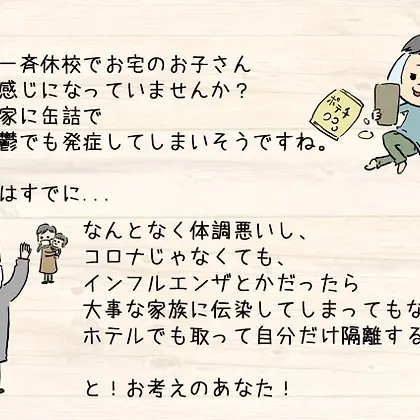 一斉休校でお宅のお子さん
感じになっていませんか？
家に缶詰で
鬱でも発症してしまいそうですね。
ポテチ
はすでに...
なんとなく体調悪いし、
コロナじゃなくても、
インフルエンザとかだったら
大事な家族に伝染してしまってもな
ホテルでも取って自分だけ隔離する
と！お考えのあなた！